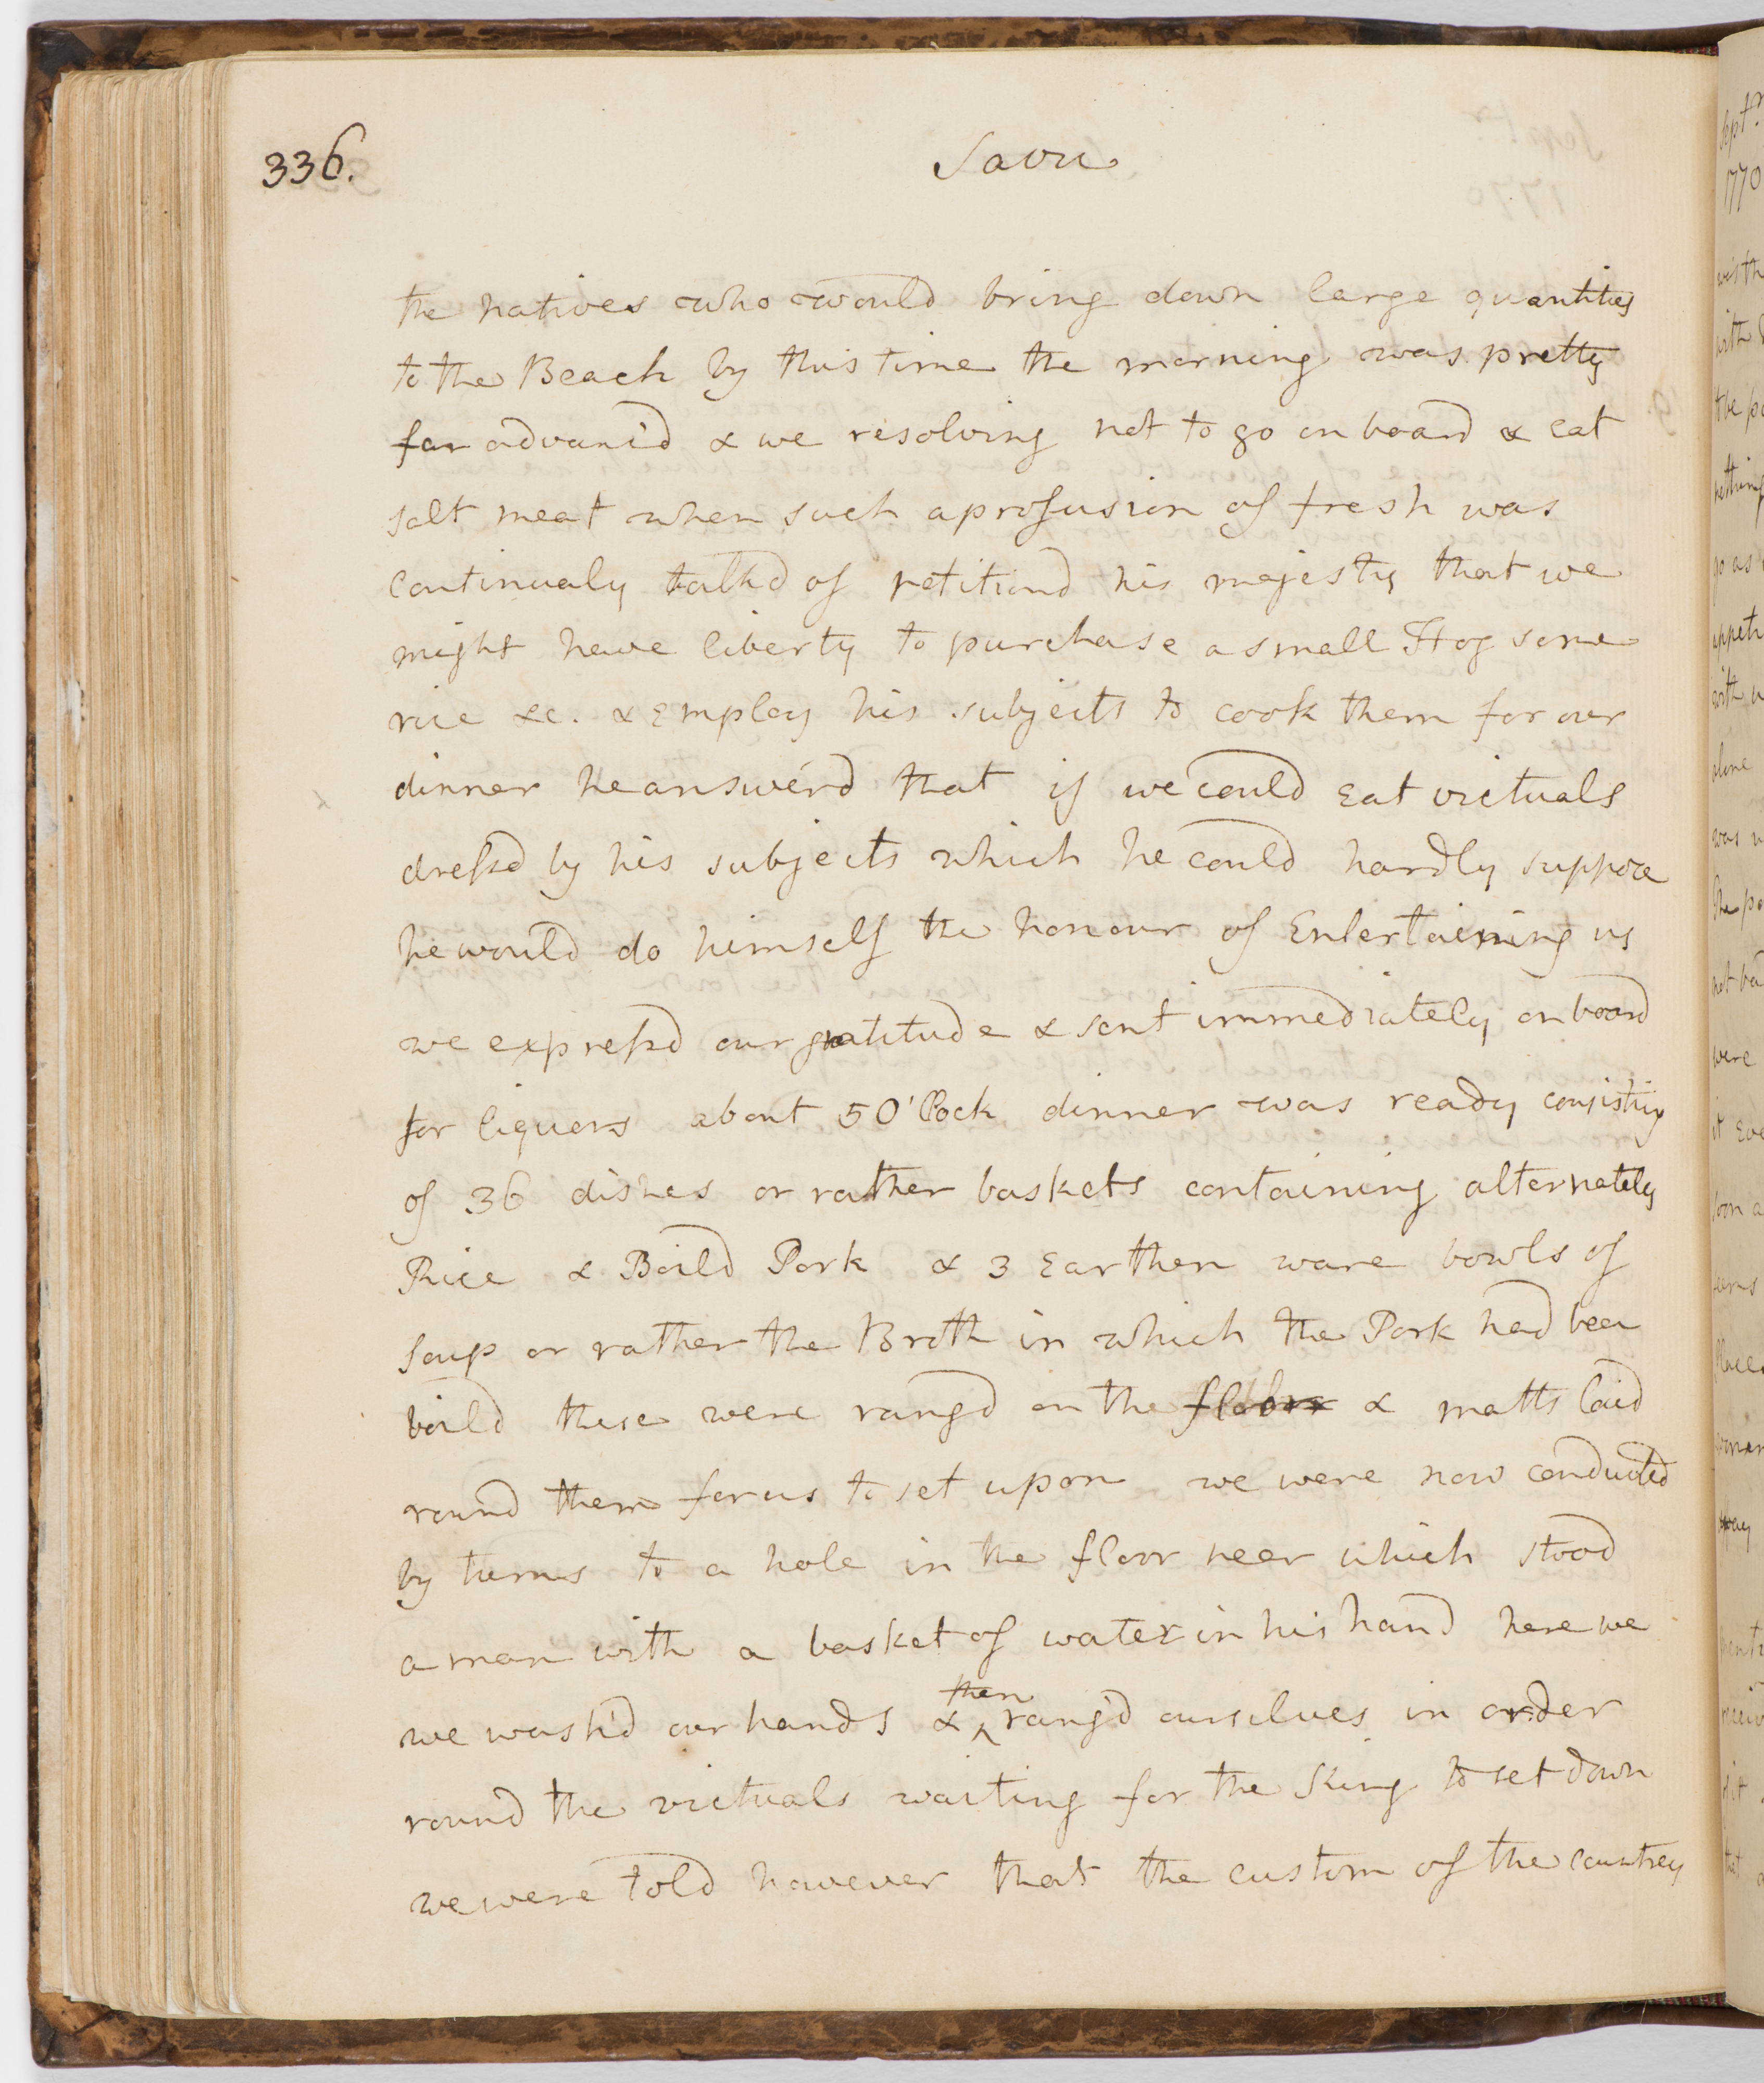 336.
Savu
the natives who would bring down large quantities
to the Beach by this time the morning was pretty
far advanc'd & we resolving not to go on board & eat
salt meat when such a profusion of fresh was
continualy talkd of petitiond his majesty that we
might have liberty to purchase a small Hog some
rice &c. & Employ his subjects to cook them for our
dinner he answerd that if we could Eat victuals
dressd by his subjects which he could hardly suppose
he would do himself the honour of Entertaining us
we expressd our gratitude & sent immediately on board
for liquors about 5 O'Clock dinner was ready consisting
of 36 dishes or rather baskets containing alternately
Rice & Boild Pork & 3 Earthen ware bowls of
soup or rather the Broth in which the Pork had been
boild these were rangd on the floor & matts laid
round them for us to set upon we were now conducted
by turns to a hole in the floor near which stood
a man with a basket of water in his hand here we
we wash'd our hands & then rang'd ourselves in order
round the victuals waiting for the King to set down
we were told however that the custom of the countrey